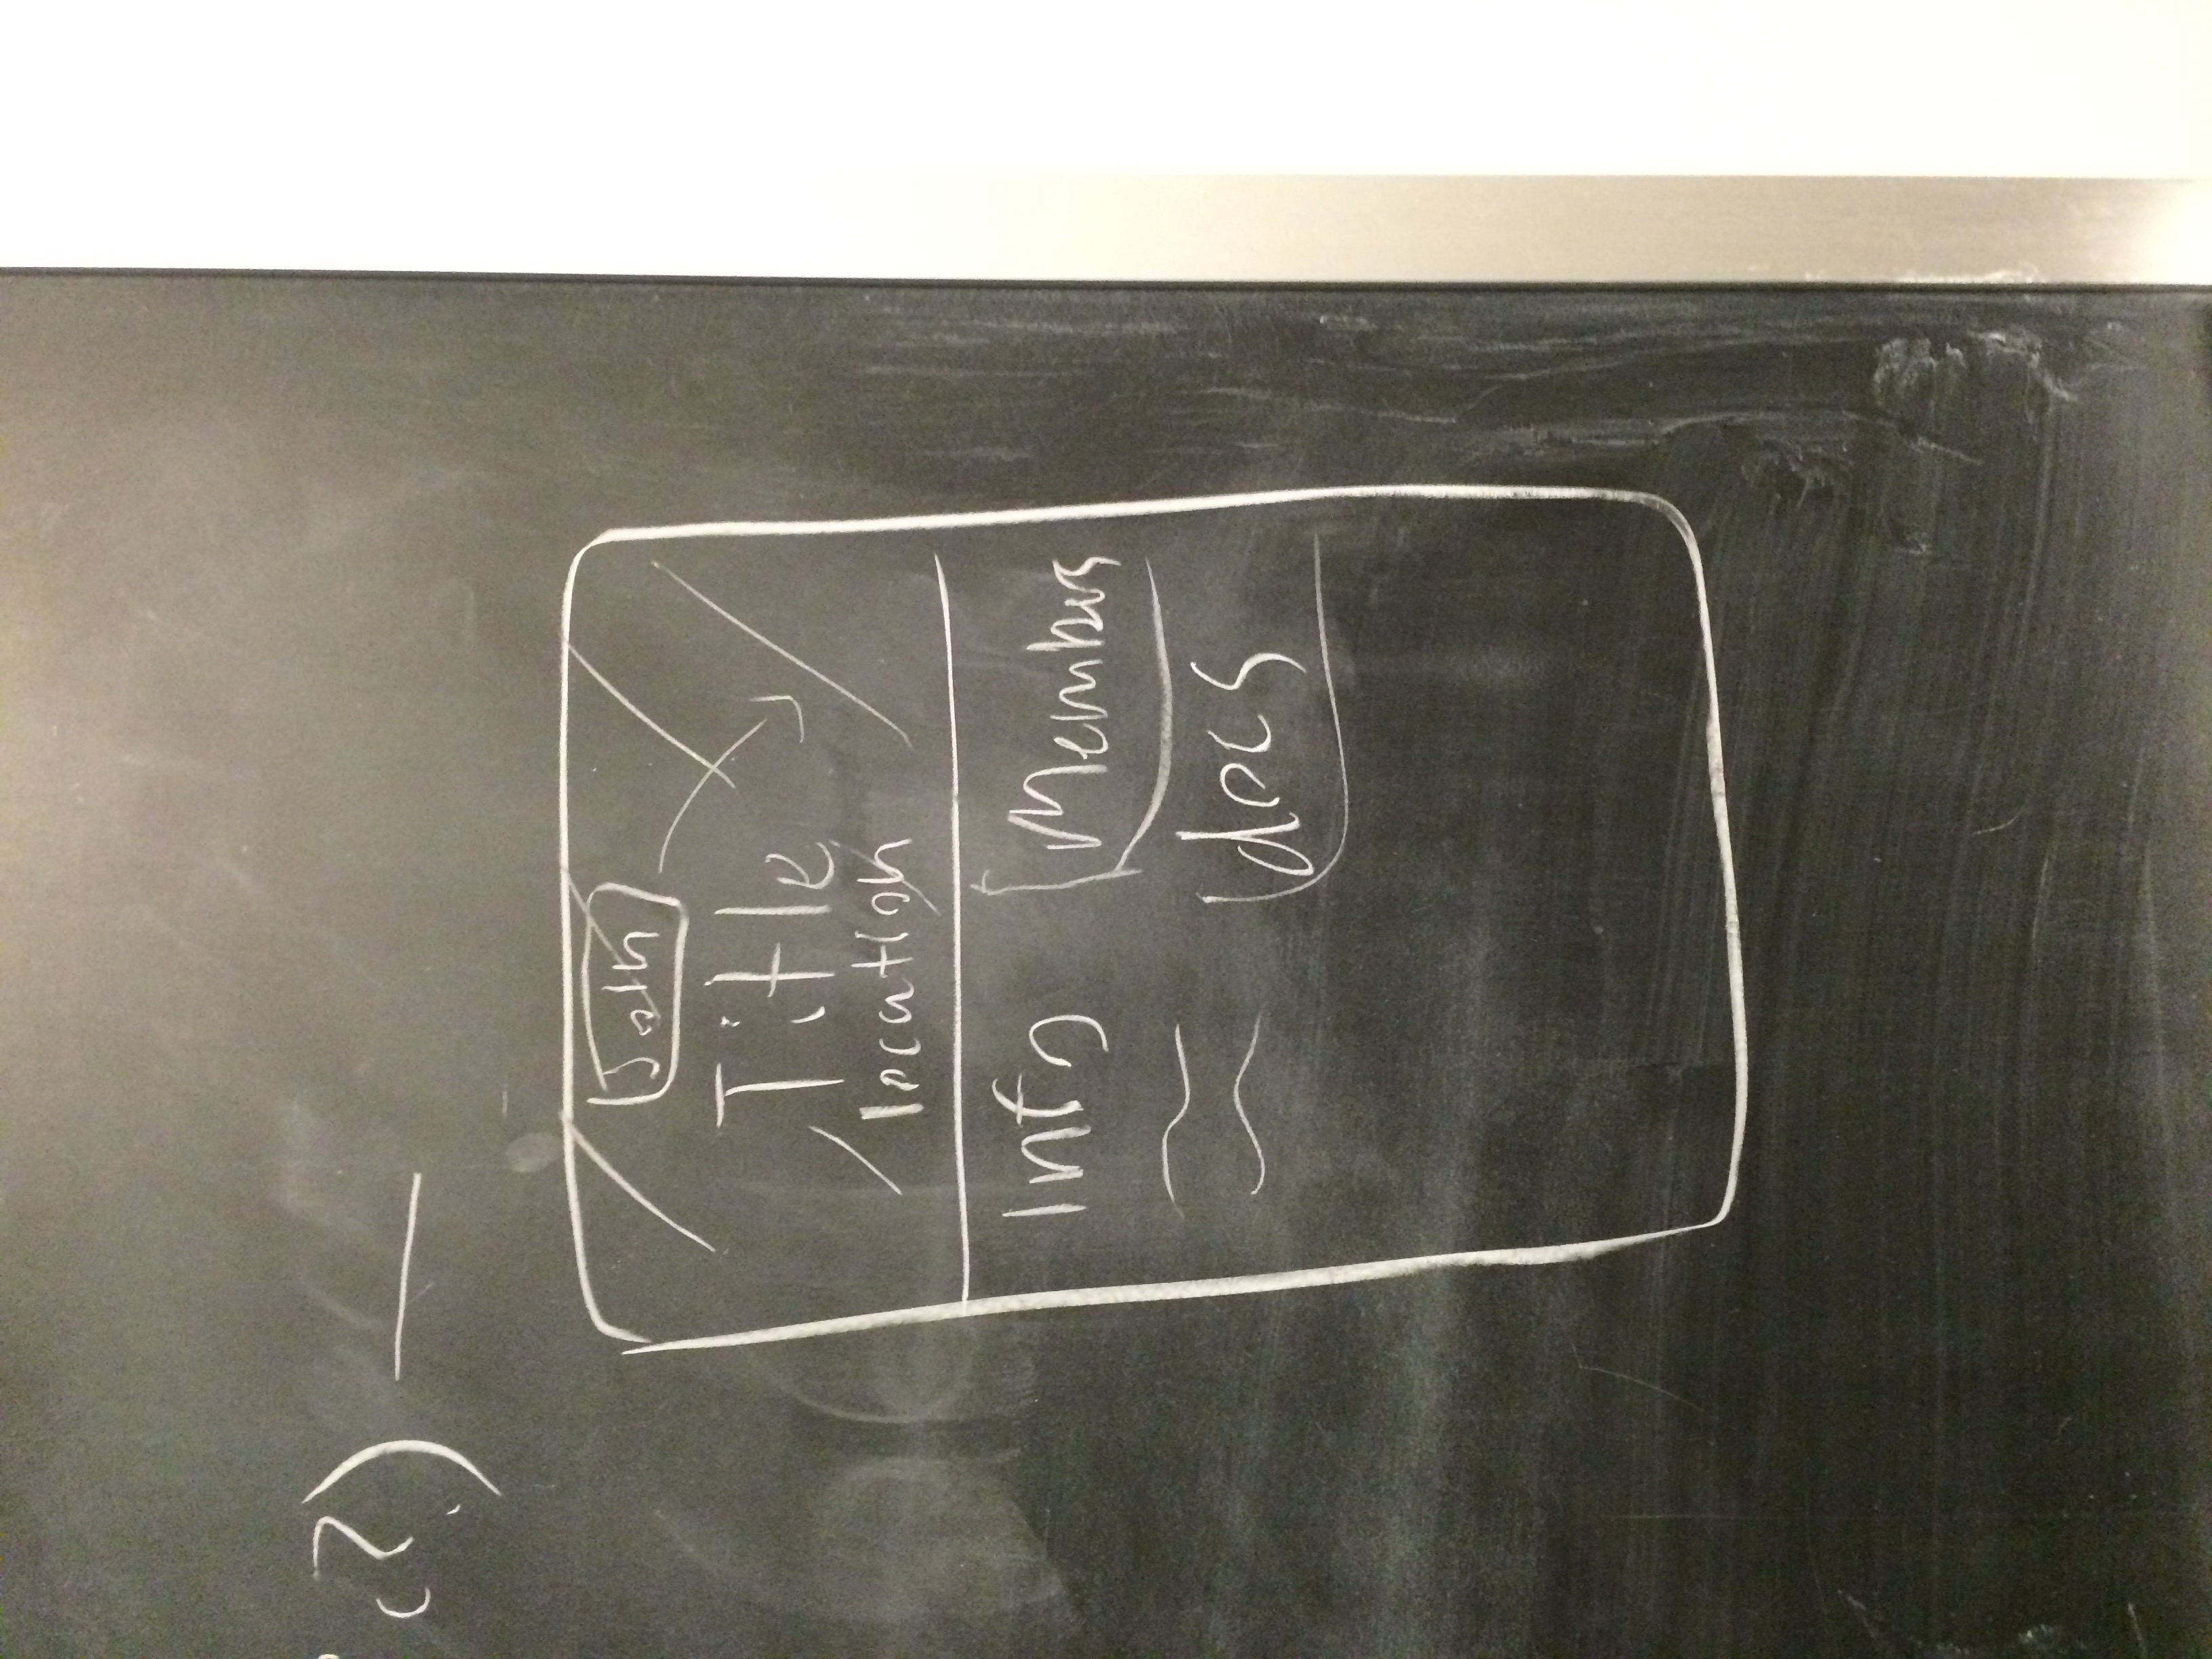 c?)
Join
Title
location
Info
Members
docs